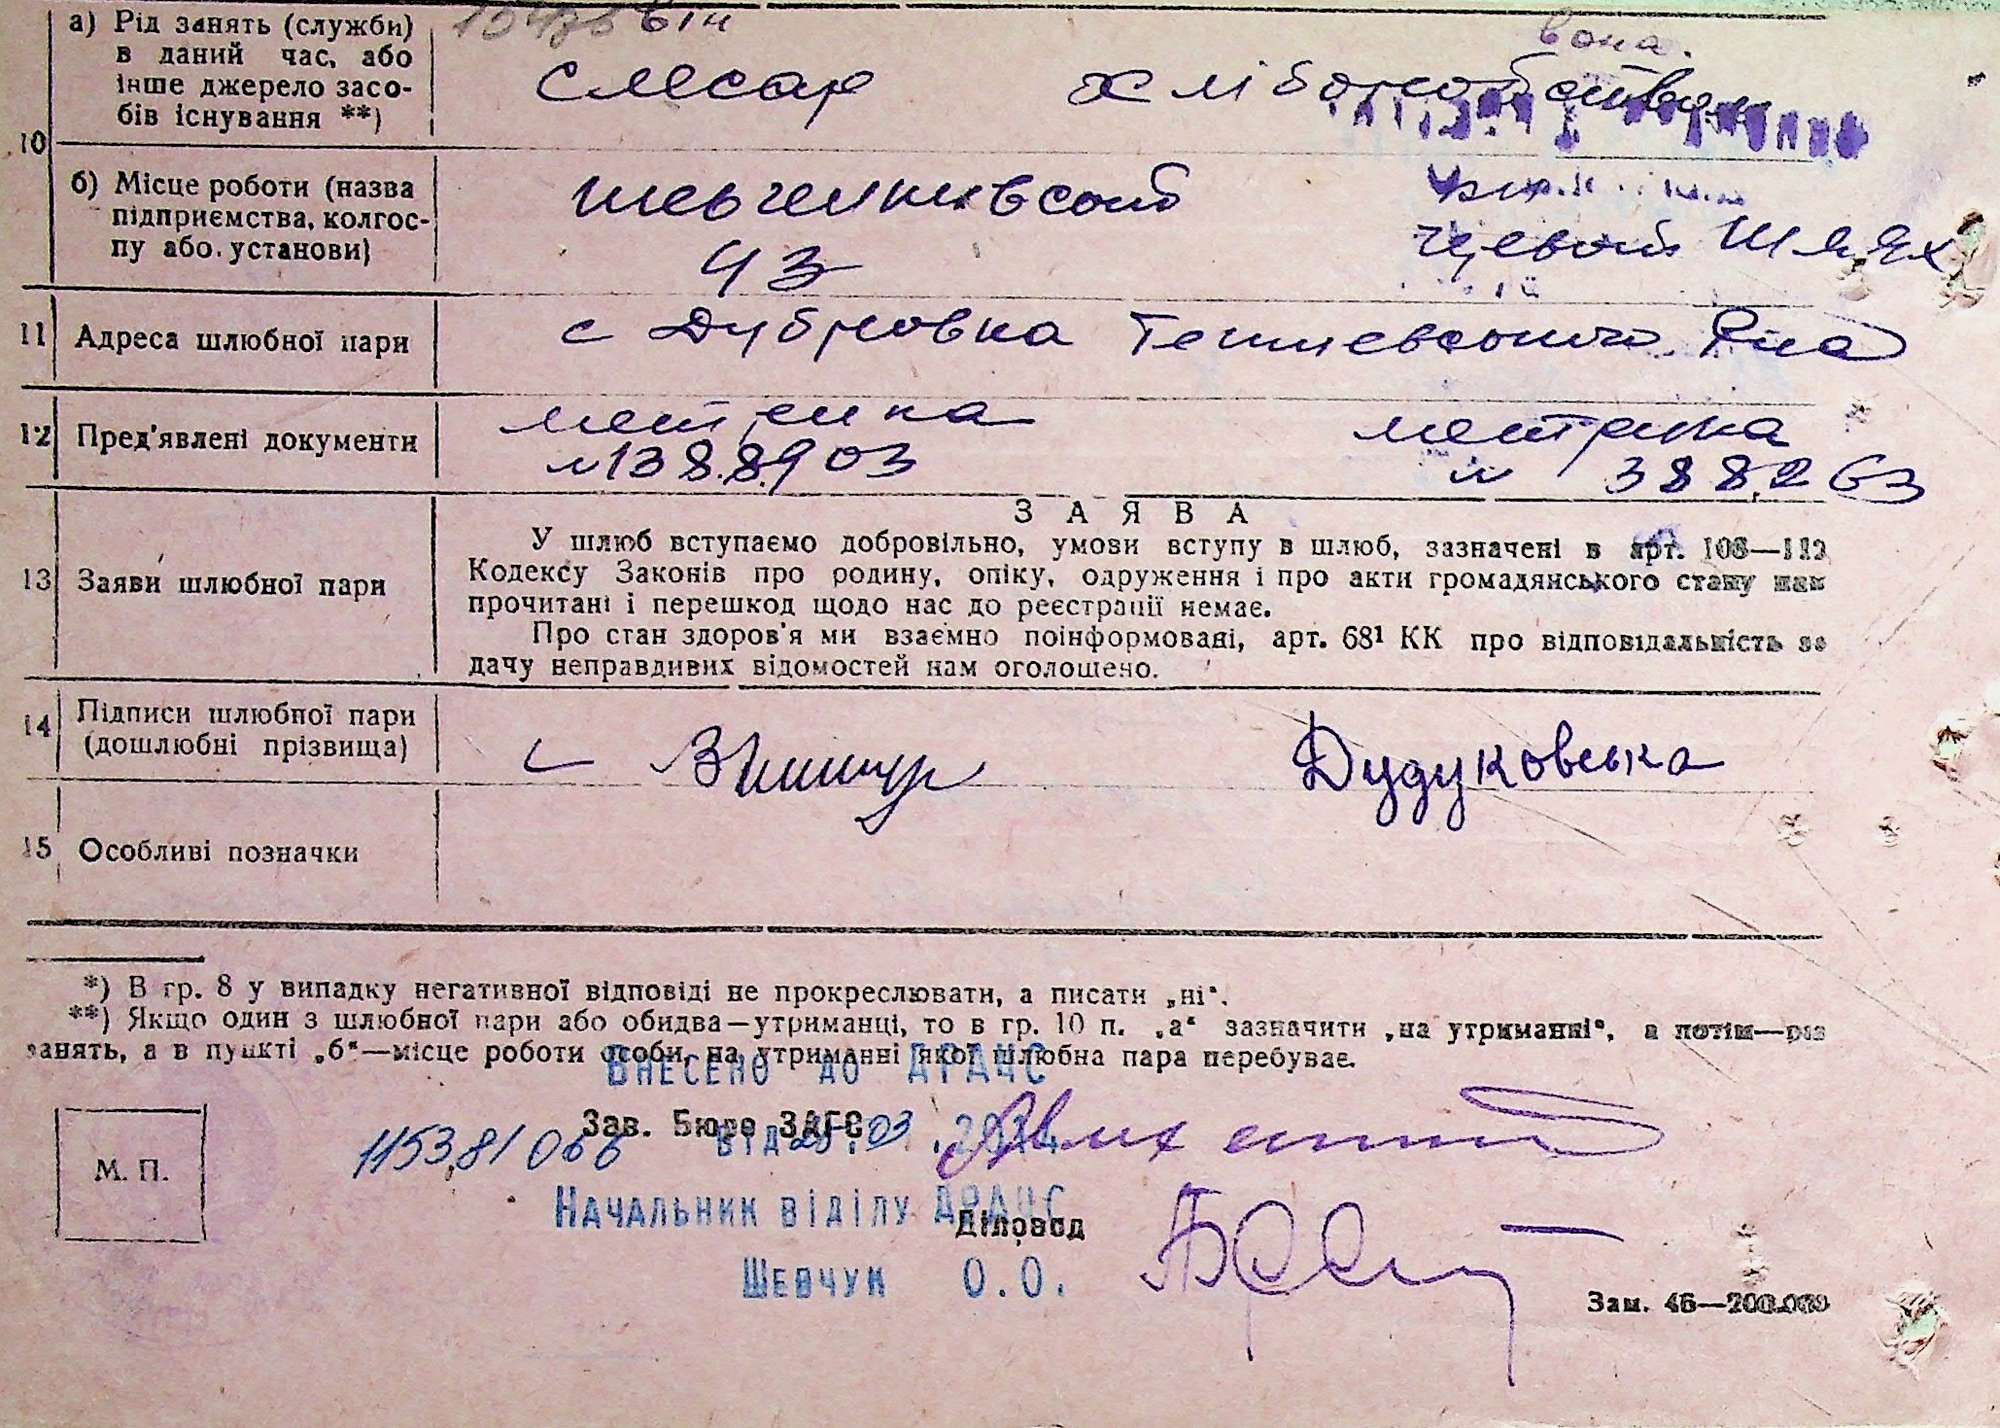 він вона.
10
а) Рід занять (служби)
в даний час, або
інше джерело засо-
бів існування **)
слесар хліборобством
б) Місце роботи (назва
підприємства, колгос-
пу або установи)
ЧЗ
Шлях
11 Адреса шлюбної пари
с Дубровка
12 Пред'явлені документи
метрика метрика
N 1388903 N 388263
13 Заяви шлюбної пари
ЗАЯВА
У шлюб вступаємо добровільно, умови вступу в шлюб, зазначені в арт. 108—112
Кодексу Законів про родину, опіку, одруження і про акти громадянського стану нам
прочитані і перешкод щодо нас до реєстрації немає.
Про стан здоров'я ми взаємно поінформовані, арт. 68¹ КК про відповідальність за
дачу неправдивих відомостей нам оголошено.
14 Підписи шлюбної пари
(дошлюбні прізвища)
Дудуковська
15 Особливі позначки
*) В гр. 8 у випадку негативної відповіді не прокреслювати, а писати „ні“.
**) Якщо один з шлюбної пари або обидва—утриманці, то в гр. 10 п. „а“ зазначити „на утриманні“, а потім—рід
занять, а в пункті „б“—місце роботи особи, на утриманні якої шлюбна пара перебуває.
Внесено до ДРАЧС
Зав. Бюро ЗАГС
від 25.03.2014
М. П.
Начальник відділу ДРАЧС
Діловод
Шевчук О.О.
Зам. 46—200.000